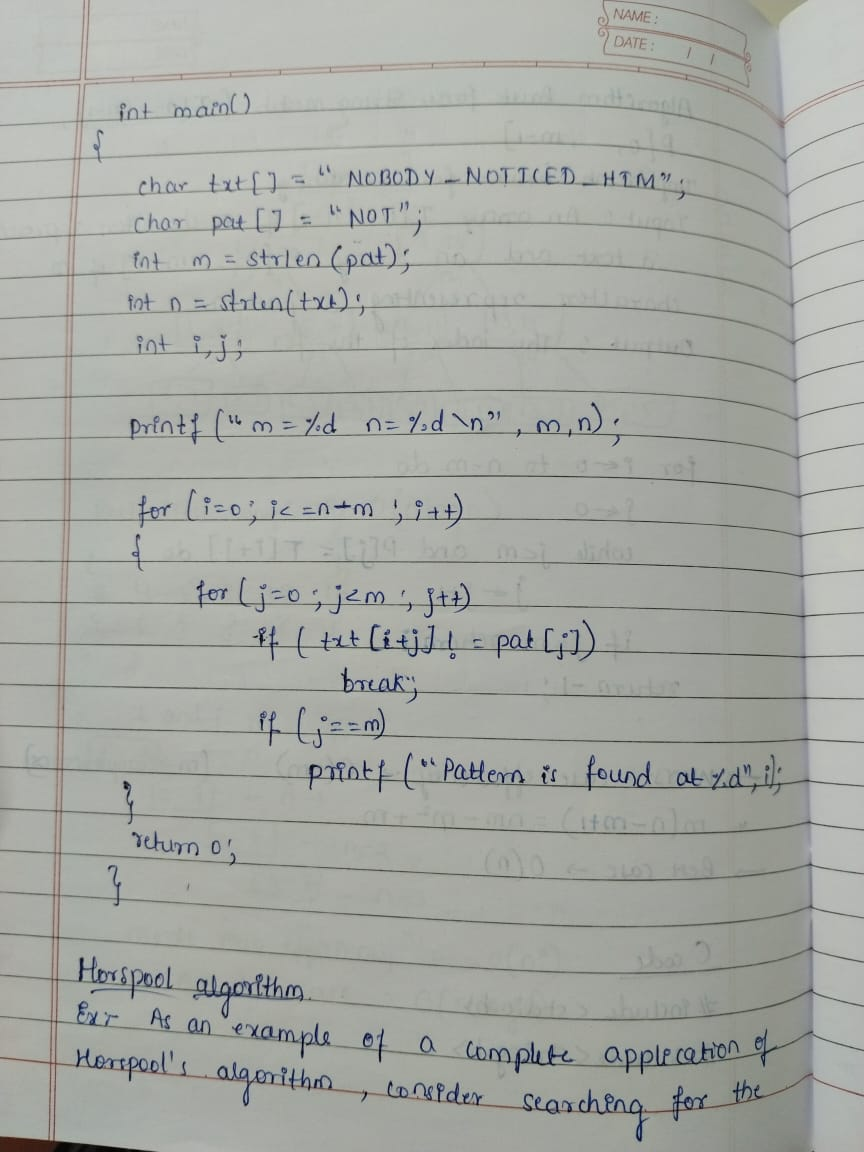 NAME:
DATE: / /
int main()
{
char txt[] = "NOBODY_NOTICED_HIM";
char pat[] = "NOT";
int m = strlen(pat);
int n = strlen(txt);
int i,j;
printf("m = %d n= %d \n", m,n);
for (i=0; i<=n-m ; i++)
{
for (j=0; j<m ; j++)
if (txt[i+j] != pat[j])
break;
if (j==m)
printf("Pattern is found at %d", i);
}
return 0;
}
Horspool algorithm.
Ex:- As an example of a complete applecation of
Horspool's algorithm, consider searching for the